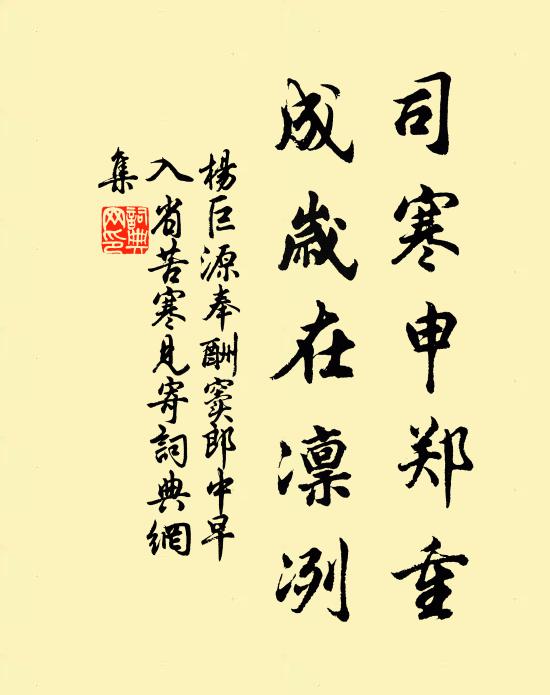 司寒申郑重
成岁在凛冽
杨巨源奉酬窦郎中早
入省苦寒见寄词典网
集
詞典网印